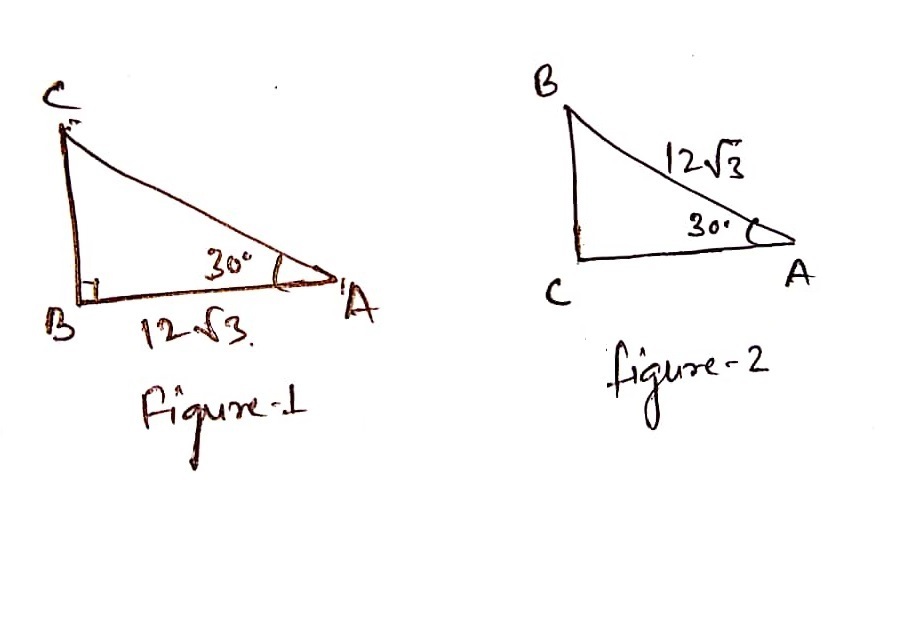 C
30°
B
A
12√3.
Figure-1
B
12√3
30°
C
A
figure-2